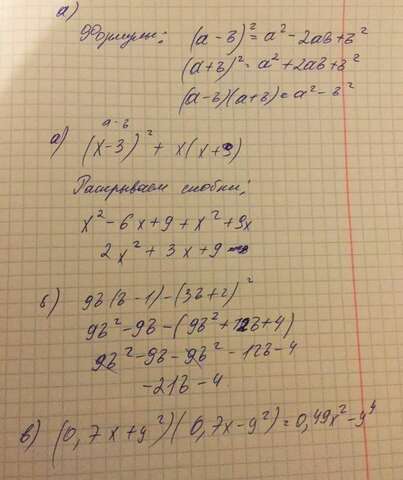 а)
Формулы: (a-в)² = a² - 2aв + в²
(a+в)² = a² + 2aв + в²
(a-в)(a+в) = a² - в²
a-в
а) (x-3)² + x(x+9)
Раскрываем скобки:
x² - 6x + 9 + x² + 9x
2x² + 3x + 9
б) 9в(в-1) - (3в+2)²
9в² - 9в - (9в² + 12в + 4)
9в² - 9в - 9в² - 12в - 4
-21в - 4
в) (0,7x+y²)(0,7x-y²) = 0,49x² - y⁴